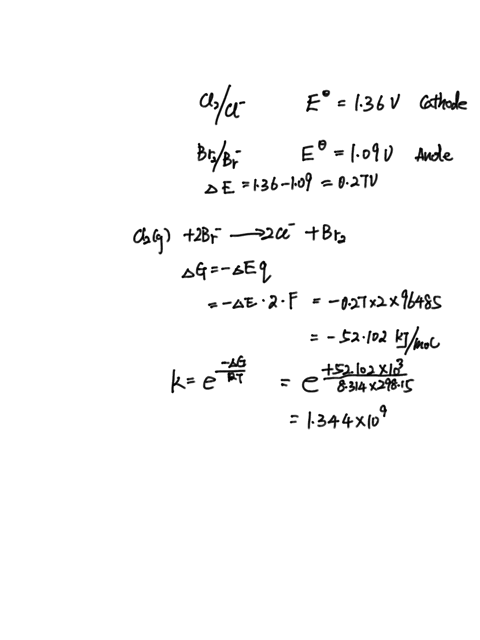 Cl₂/Cl⁻ E° = 1.36 V Cathode
Br₂/Br⁻ E° = 1.09 V Anode
ΔE = 1.36 - 1.09 = 0.27V
Cl₂(g) + 2Br⁻ → 2Cl⁻ + Br₂
ΔG = -ΔEq
= -ΔE · 2 · F = -0.27 × 2 × 96485
= -52.102 kJ/mol
K = e^(-ΔG/RT) = e^(+52.102 × 10³/8.314 × 298.15)
= 1.344 × 10⁹